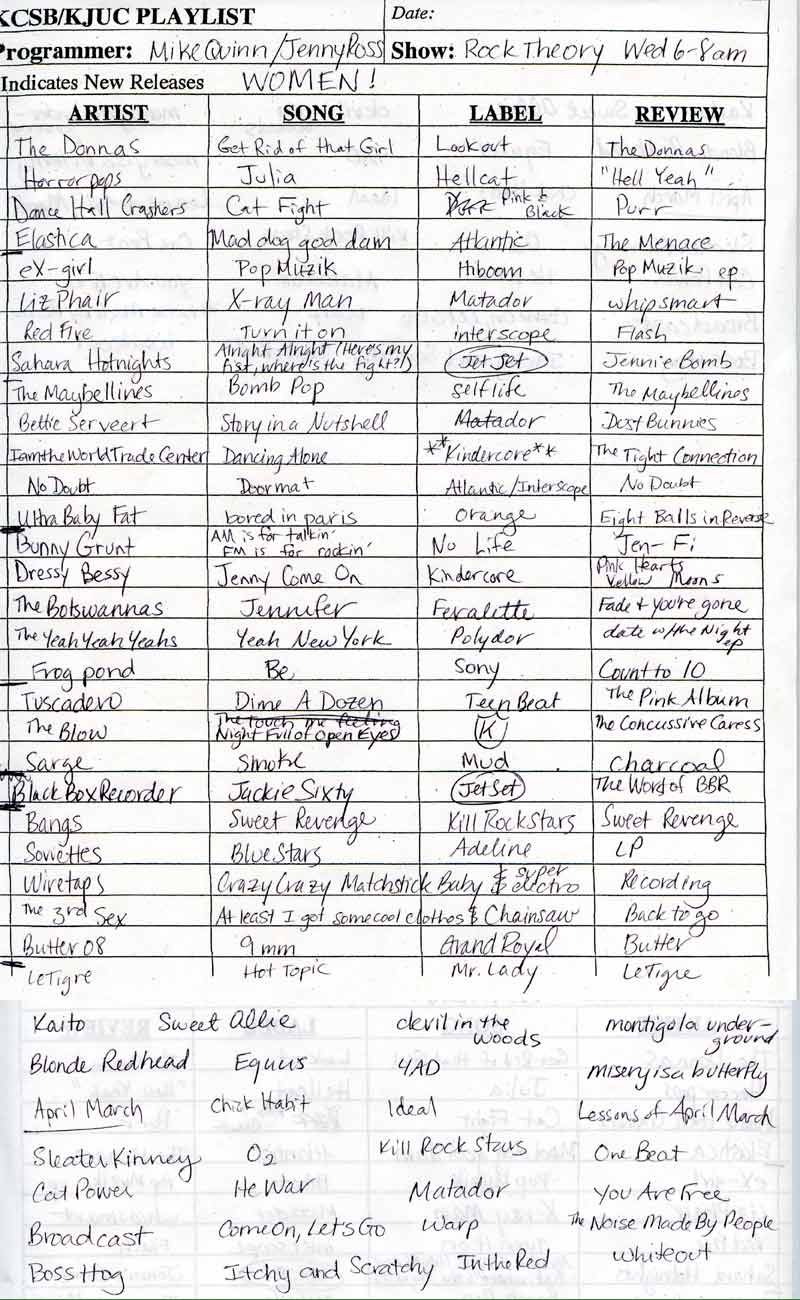 KCSB/KJUC PLAYLIST Date:
Programmer: Mike Quinn/Jenny Ross Show: Rock Theory Wed 6-8am
Indicates New Releases WOMEN!
ARTIST SONG LABEL REVIEW
The Donnas Get Rid of that Girl Lookout The Donnas
Horrorpops Julia Hellcat "Hell Yeah"
Dance Hall Crashers Cat Fight Pink & Black Purr
Elastica Mad dog god dam Atlantic The Menace
eX-girl Pop Muzik Hiboom Pop Muzik ep
Liz Phair X-ray man Matador whipsmart
Red Five Turn it on interscope Flash
Sahara Hotnights Alright Alright (Here's my fist, where's the fight?!) Jet Set Jennie Bomb
The Maybellines Bomb Pop self life The Maybellines
Bettie Serveert Story in a Nutshell Matador Dust Bunnies
I am the World Trade Center Dancing Alone **Kindercore** The Tight Connection
No Doubt Doormat Atlantic/Interscope No Doubt
Ultra Baby Fat bored in paris Orange Eight Balls in Reverse
Bunny Grunt AM is for talkin' FM is for rockin' No Life Jen-Fi
Dressy Bessy Jenny Come On Kindercore Pink Hearts Yellow Moons
The Botswannas Jennifer Feralette Fade & you're gone
The Yeah Yeah Yeahs Yeah New York Polydor date w/the Night ep
Frog pond Be, Sony Count to 10
Tuscadero Dime A Dozen Teen Beat The Pink Album
The Blow The Touch me feeling Night Full of Open Eyes K The Concussive Caress
Sarge Smoke Mud Charcoal
Black Box Recorder Jackie Sixty Jet Set The Worst of BBR
Bangs Sweet Revenge Kill Rock Stars Sweet Revenge
Soviettes Blue Stars Adeline LP
Wiretaps Crazy Crazy Matchstick Baby & super electro Recording
The 3rd Sex At least I got some cool clothes & Chainsaw Back to go
Butter 08 9mm Grand Royal Butter
Le Tigre Hot Topic Mr. Lady Le Tigre
Kaito Sweet Allie devil in the woods montigola underground
Blonde Redhead Equus 4AD misery is a butterfly
April March Chick Habit Ideal Lessons of April March
Sleater Kinney O2 Kill Rock Stars One Beat
Cat Power He War Matador You Are Free
Broadcast Come On, Let's Go Warp The Noise Made By People
Boss Hog Itchy and Scratchy In the Red Whiteout